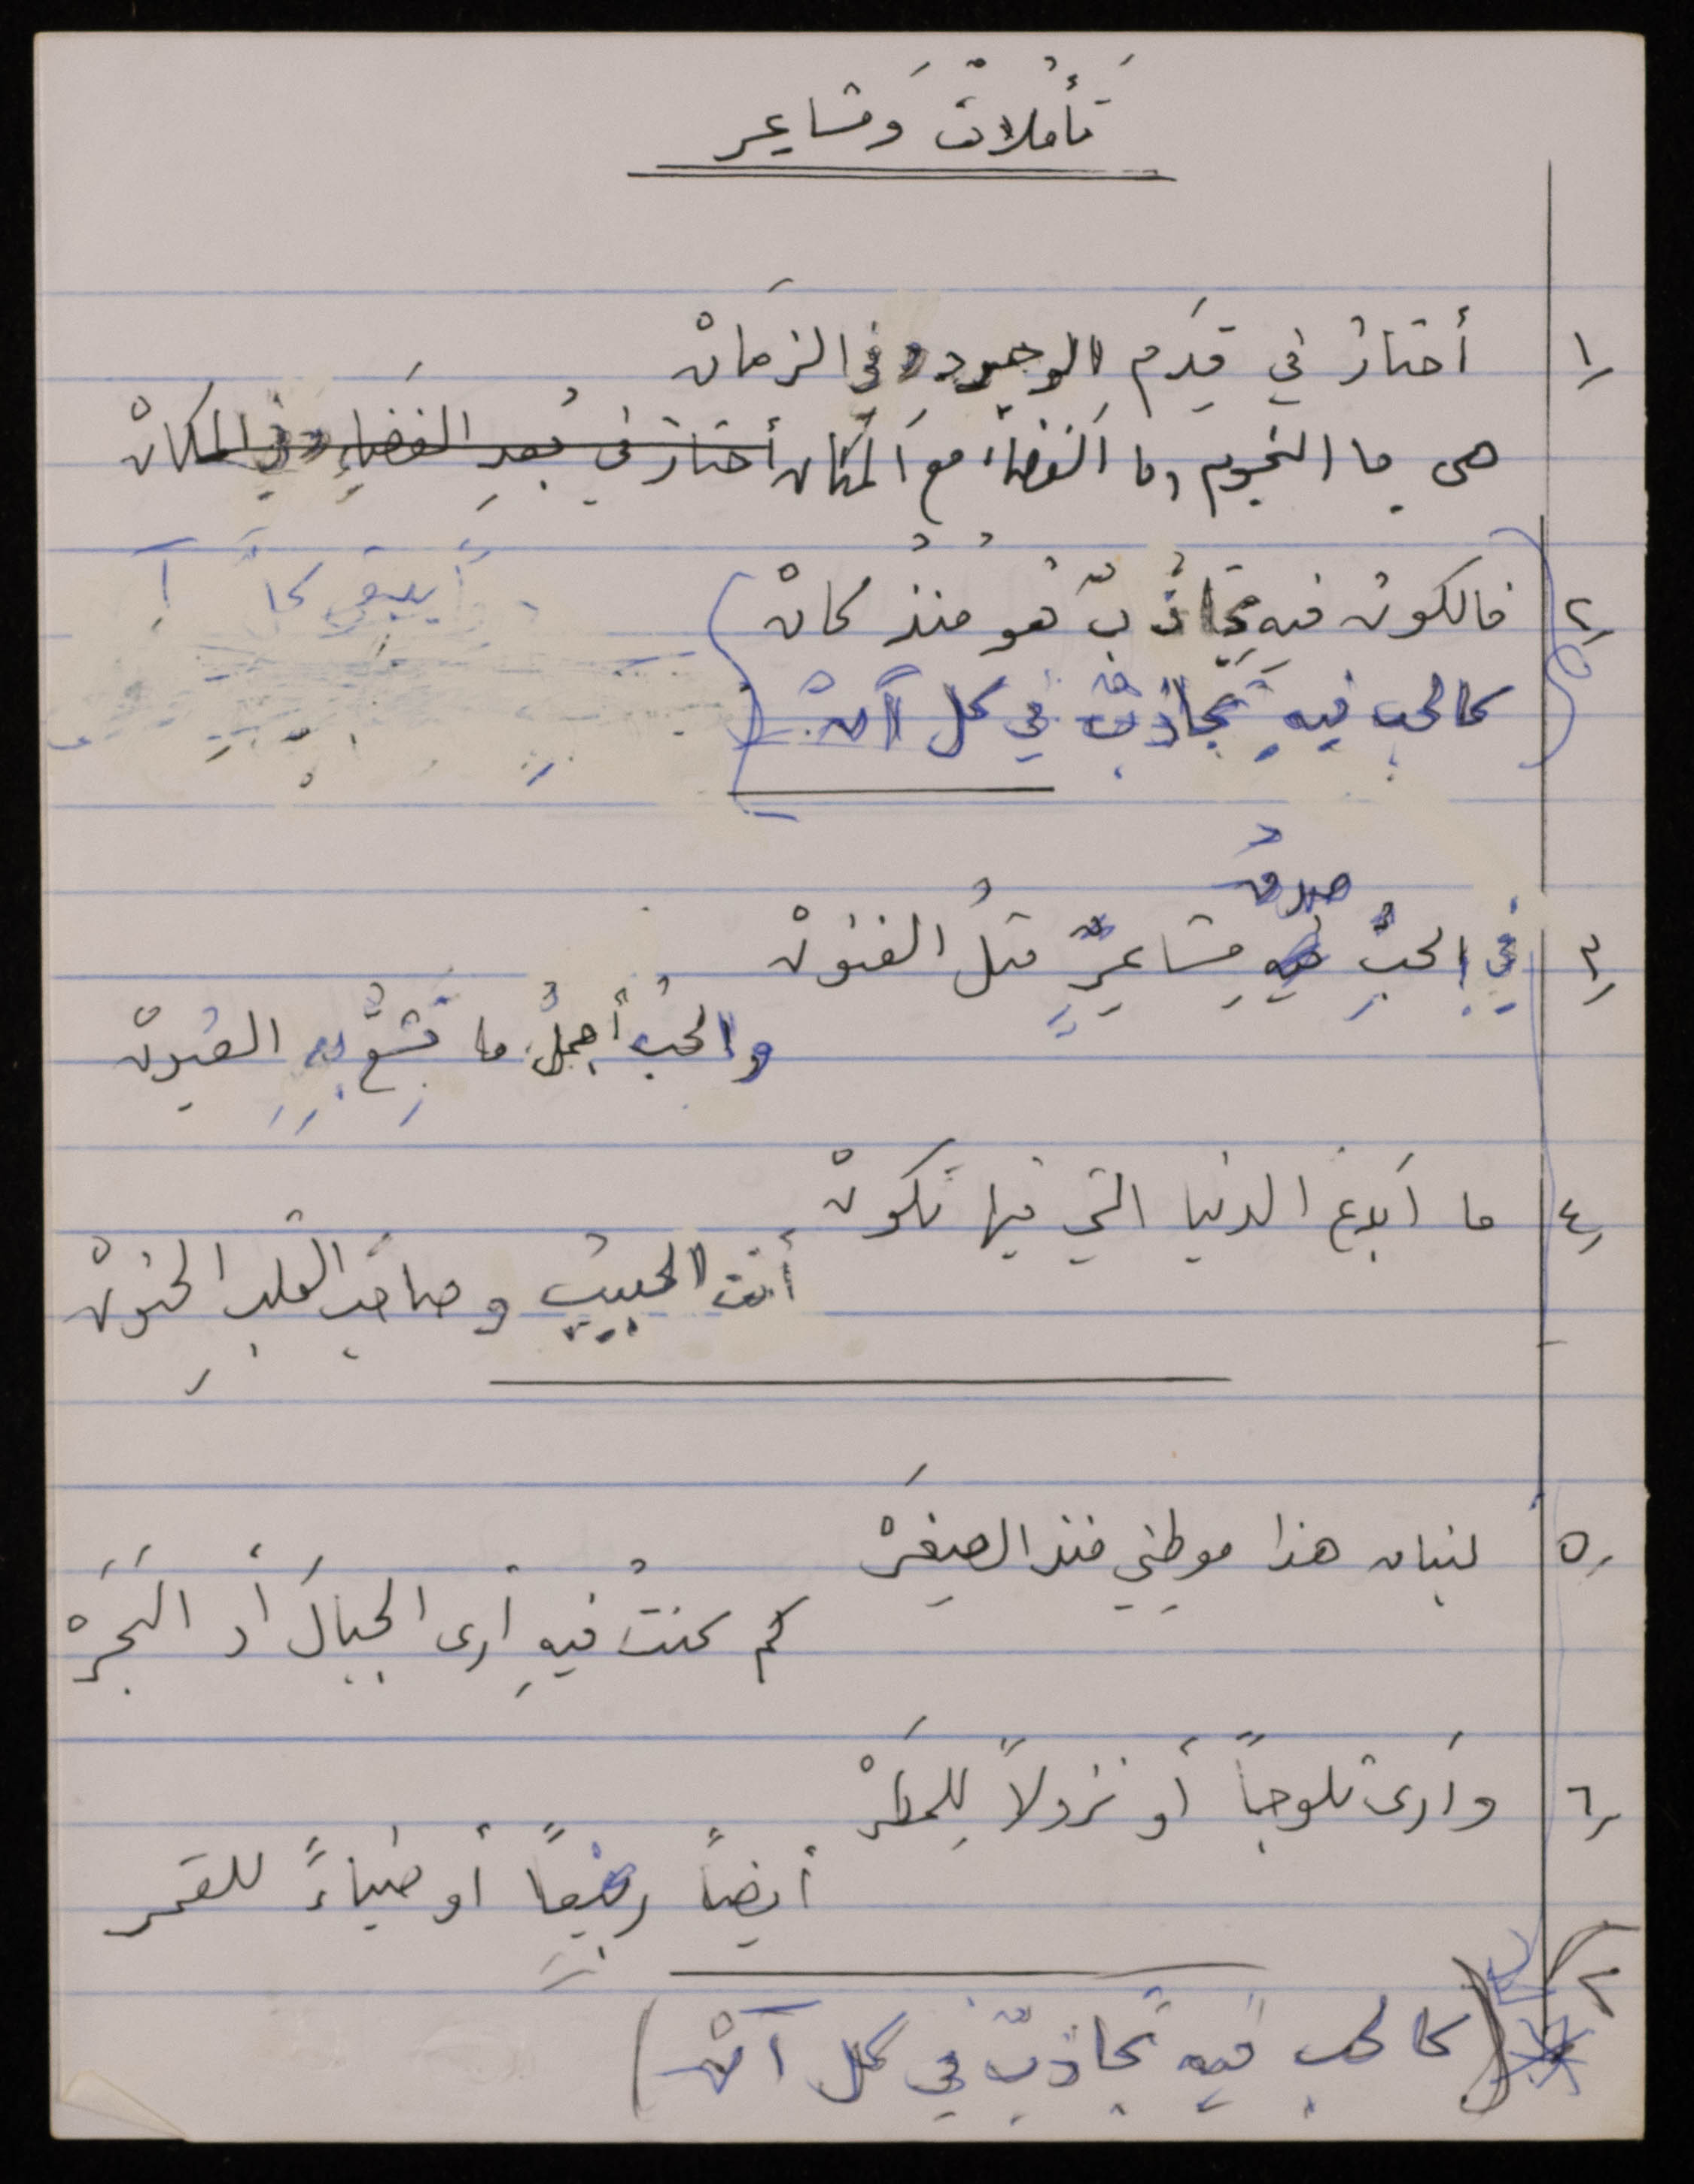 تأمُلاتٌ وَمشاعِر
١ أحتارُ في قِدَمِ الوجودِ وفي الزمَانْ
هي ما النجوم وما الفضاءُ مع المكان أحتارُ في بُعدِ الفضَاءِ وفي المكانْ
٢ فالكونُ فيهِ تجاذُبٌ هُو منذُ كانْ
كالحبِ فيهِ تجاذبٌ في كل آنْ
٣ في الحبِّ صدقُ مشاعرٍ مثلُ الفنونْ
والحبُ أجملُ ما تَشِعُّ بِهِ العُيونْ
٤ ما أبدعَ الدنيا التي فيها تكونْ
أنتَ الحبيبُ وصاحبُ القلبِ الحنونْ
٥ لبنان هذا موطِني منذ الصِغَرْ
كم كنتُ فيهِ أرى الجبالَ أو الشَجَرْ
٦ وأرى ثلوجاً أو نزولاً لِلمطَرْ
أيضاً ربيعاً أو ضياءً للقمر
٢ (كالحبِ فيهِ تجاذبٌ في كل آنْ)